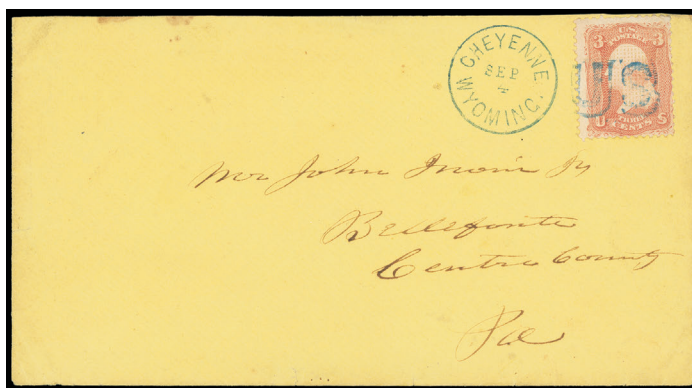 CHEYENNE.
SEP
4
WYOMING.
3 U.S. 3
POSTAGE
U THREE S
CENTS
US
Mr John Irvin Jr
Bellefonte
Centre County
Pa